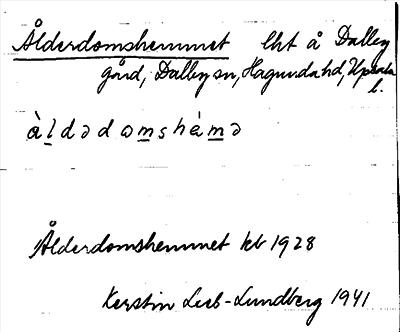 Ålderdomshemmet lht å Dalby
gård, Dalby sn, Hagunda hd, Upsala
l.
àldədomshèmə
Ålderdomshemmet kb 1928
Kerstin Leeb-Lundberg 1941